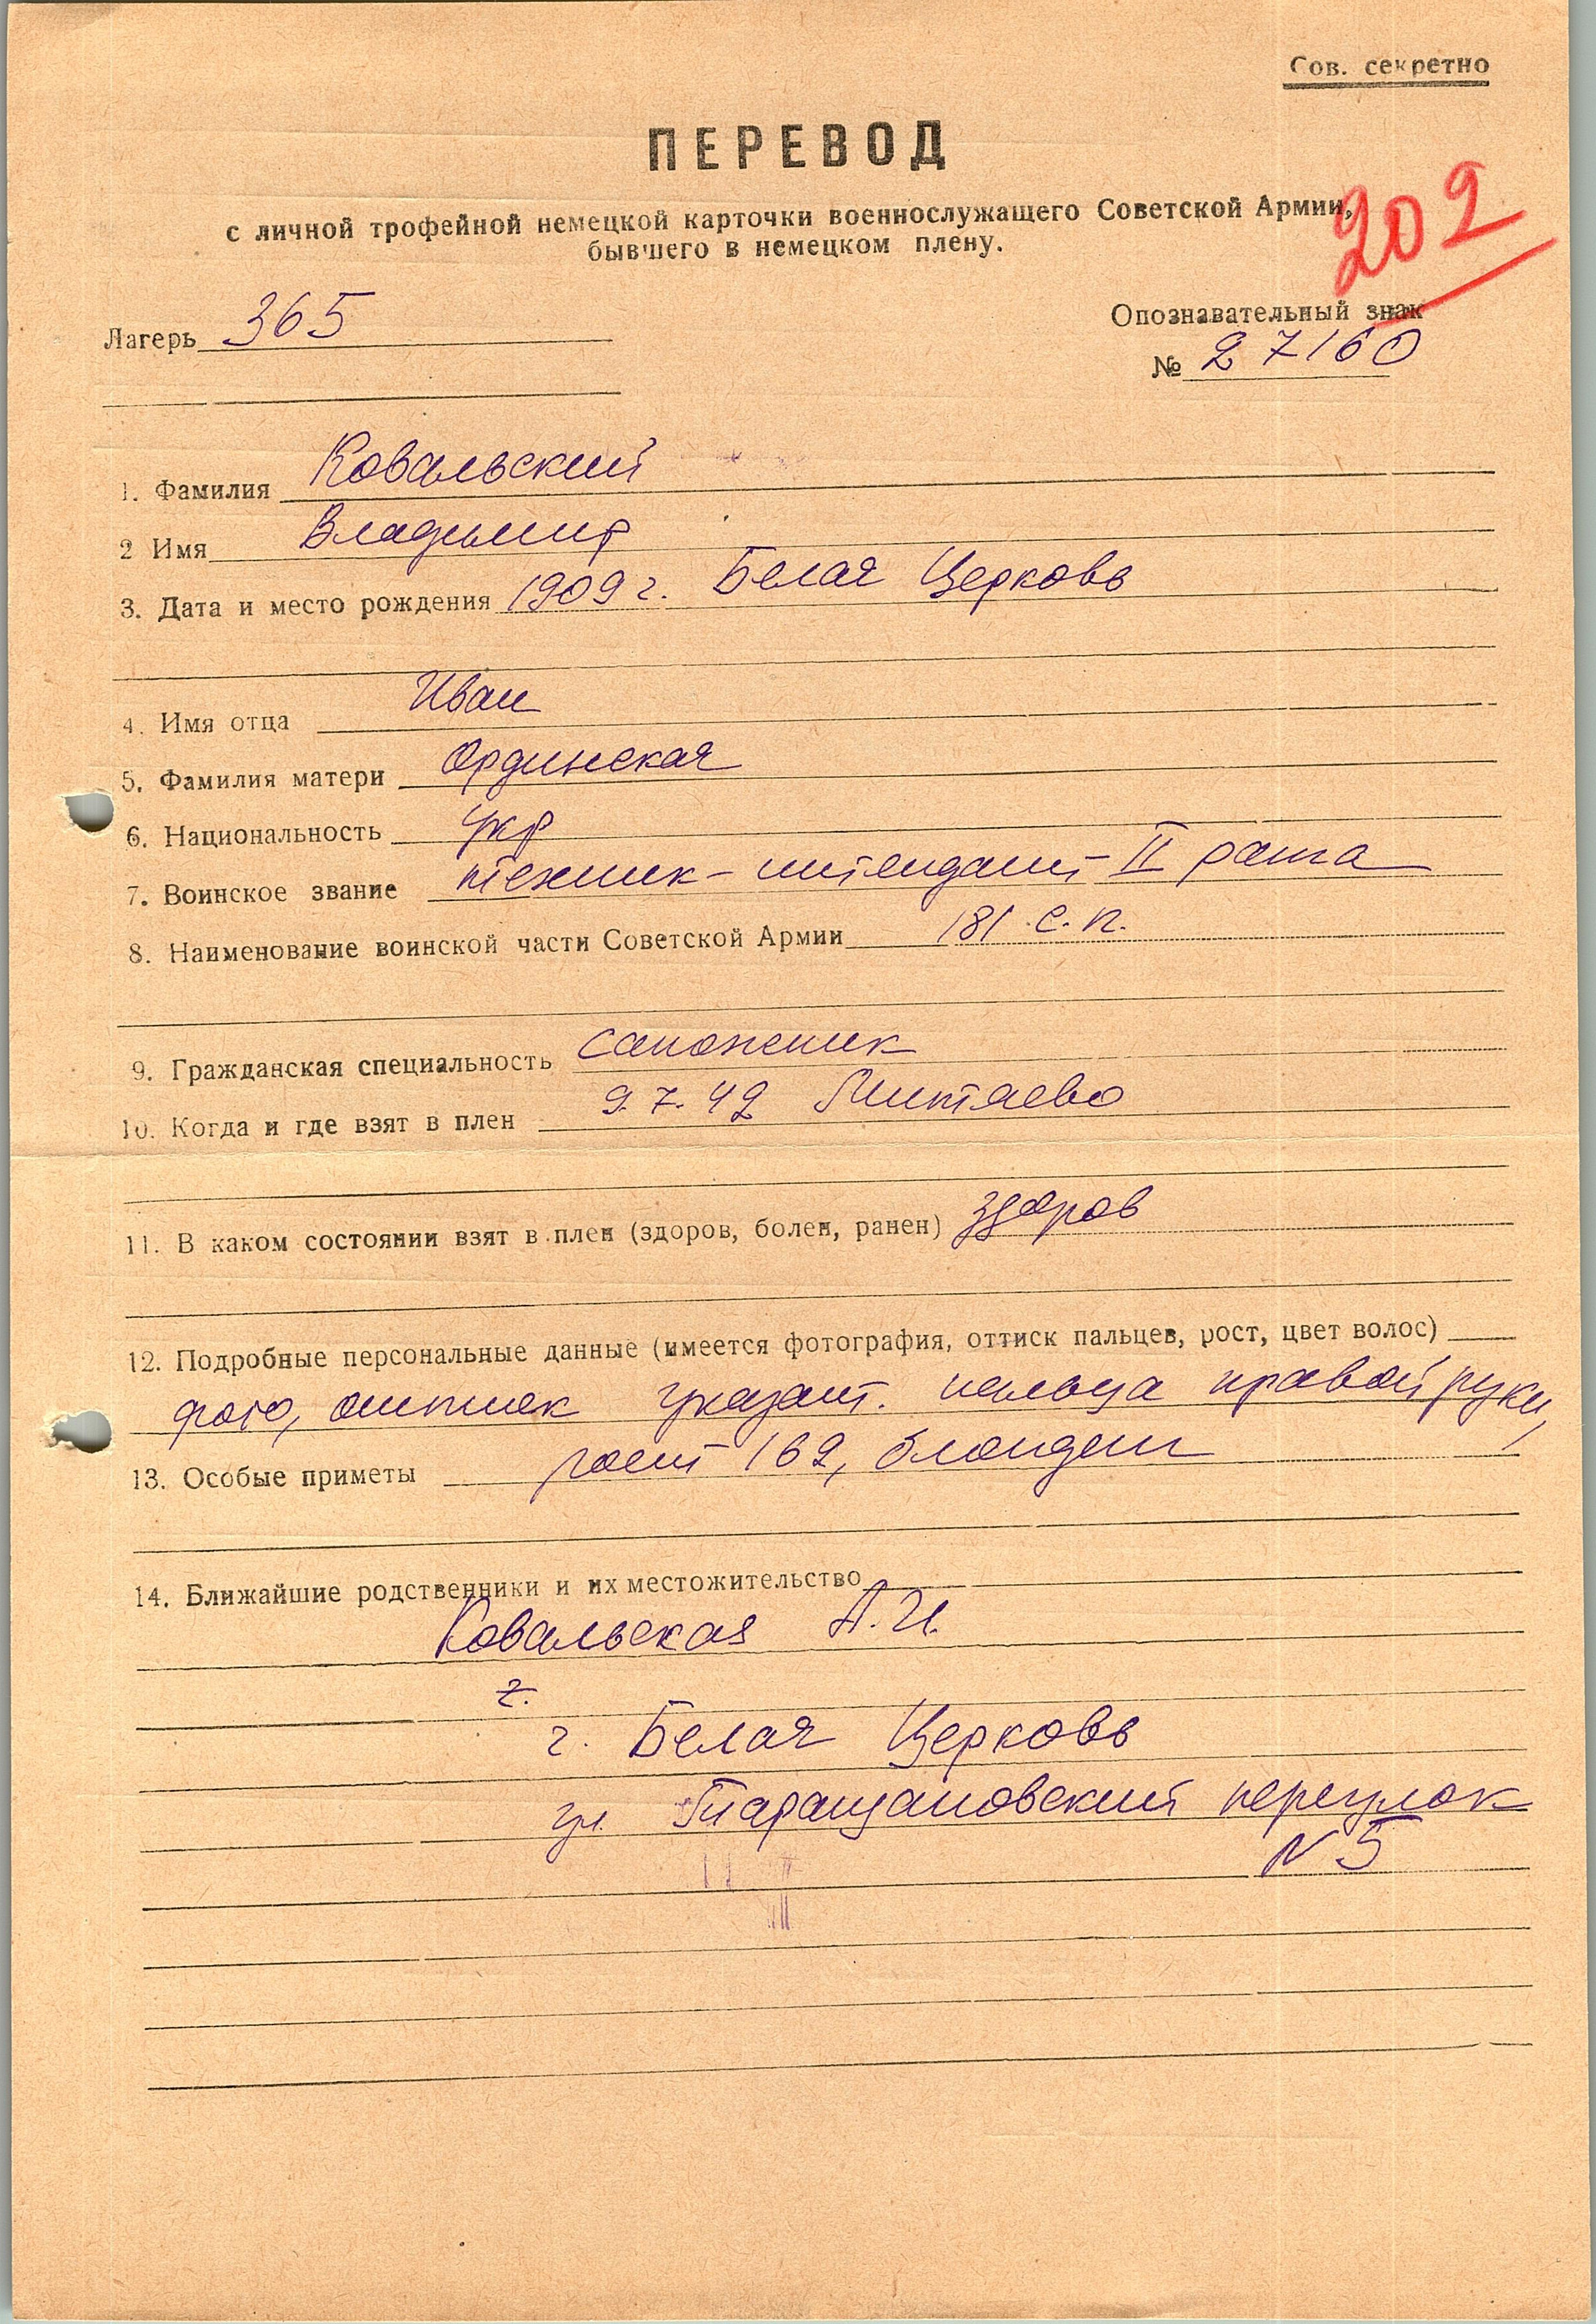 Сов. секретно
ПЕРЕВОД
с личной трофейной немецкой карточки военнослужащего Советской Армии,
бывшего в немецком плену.
202
Лагерь 365
Опознавательный знак
№ 27160
1. Фамилия Ковальский
2 Имя Владимир
3. Дата и место рождения 1909 г. Белая Церковь
4. Имя отца Иван
5. Фамилия матери Ординская
6. Национальность укр
7. Воинское звание техник-интендант II ранга
8. Наименование воинской части Советской Армии 181 с.п.
9. Гражданская специальность сапожник
10. Когда и где взят в плен 9.7.42 Митяево
11. В каком состоянии взят в плен (здоров, болен, ранен) здоров
12. Подробные персональные данные (имеется фотография, оттиск пальцев, рост, цвет волос)
фото, оттиск указат. пальца правой руки,
13. Особые приметы рост 169, блондин
14. Ближайшие родственники и их местожительство
Ковальская А.И.
г.
г. Белая Церковь
ул. Таращановский переулок
N 5